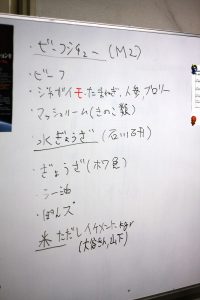 ビーフシチュー (M2)
・ビーフ
・ジャガイモ、たまねぎ、人参、ブロッコリー
・マッシュルーム(きのこ類)
水ぎょうざ (石川、石井)
・ぎょうざ(ホワ包)
・ラー油
・ぽんズ
米 ただしイケメンに
(大谷さん、山下)